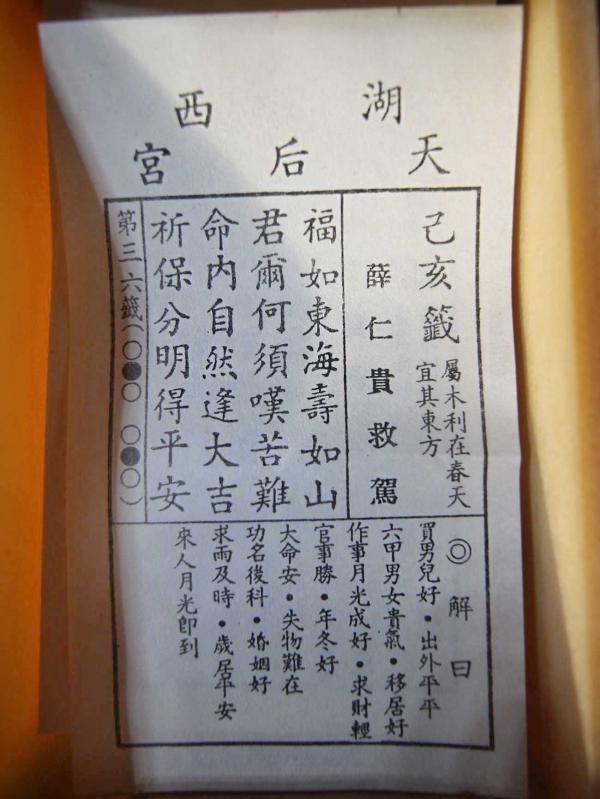 湖西
天后宮
己亥籤
屬木利在春天
宜其東方
薛仁貴救駕
福如東海壽如山
君爾何須嘆苦難
命內自然逢大吉
祈保分明得平安
第三六籤(○●○ ○●○)
◎解曰
買男兒好・出外平平
六甲男女貴氣・移居好
作事月光成好・求財輕
官事勝・年冬好
大命安・失物難在
功名後科・婚姻好
求雨及時・歲居平安
來人月光即到